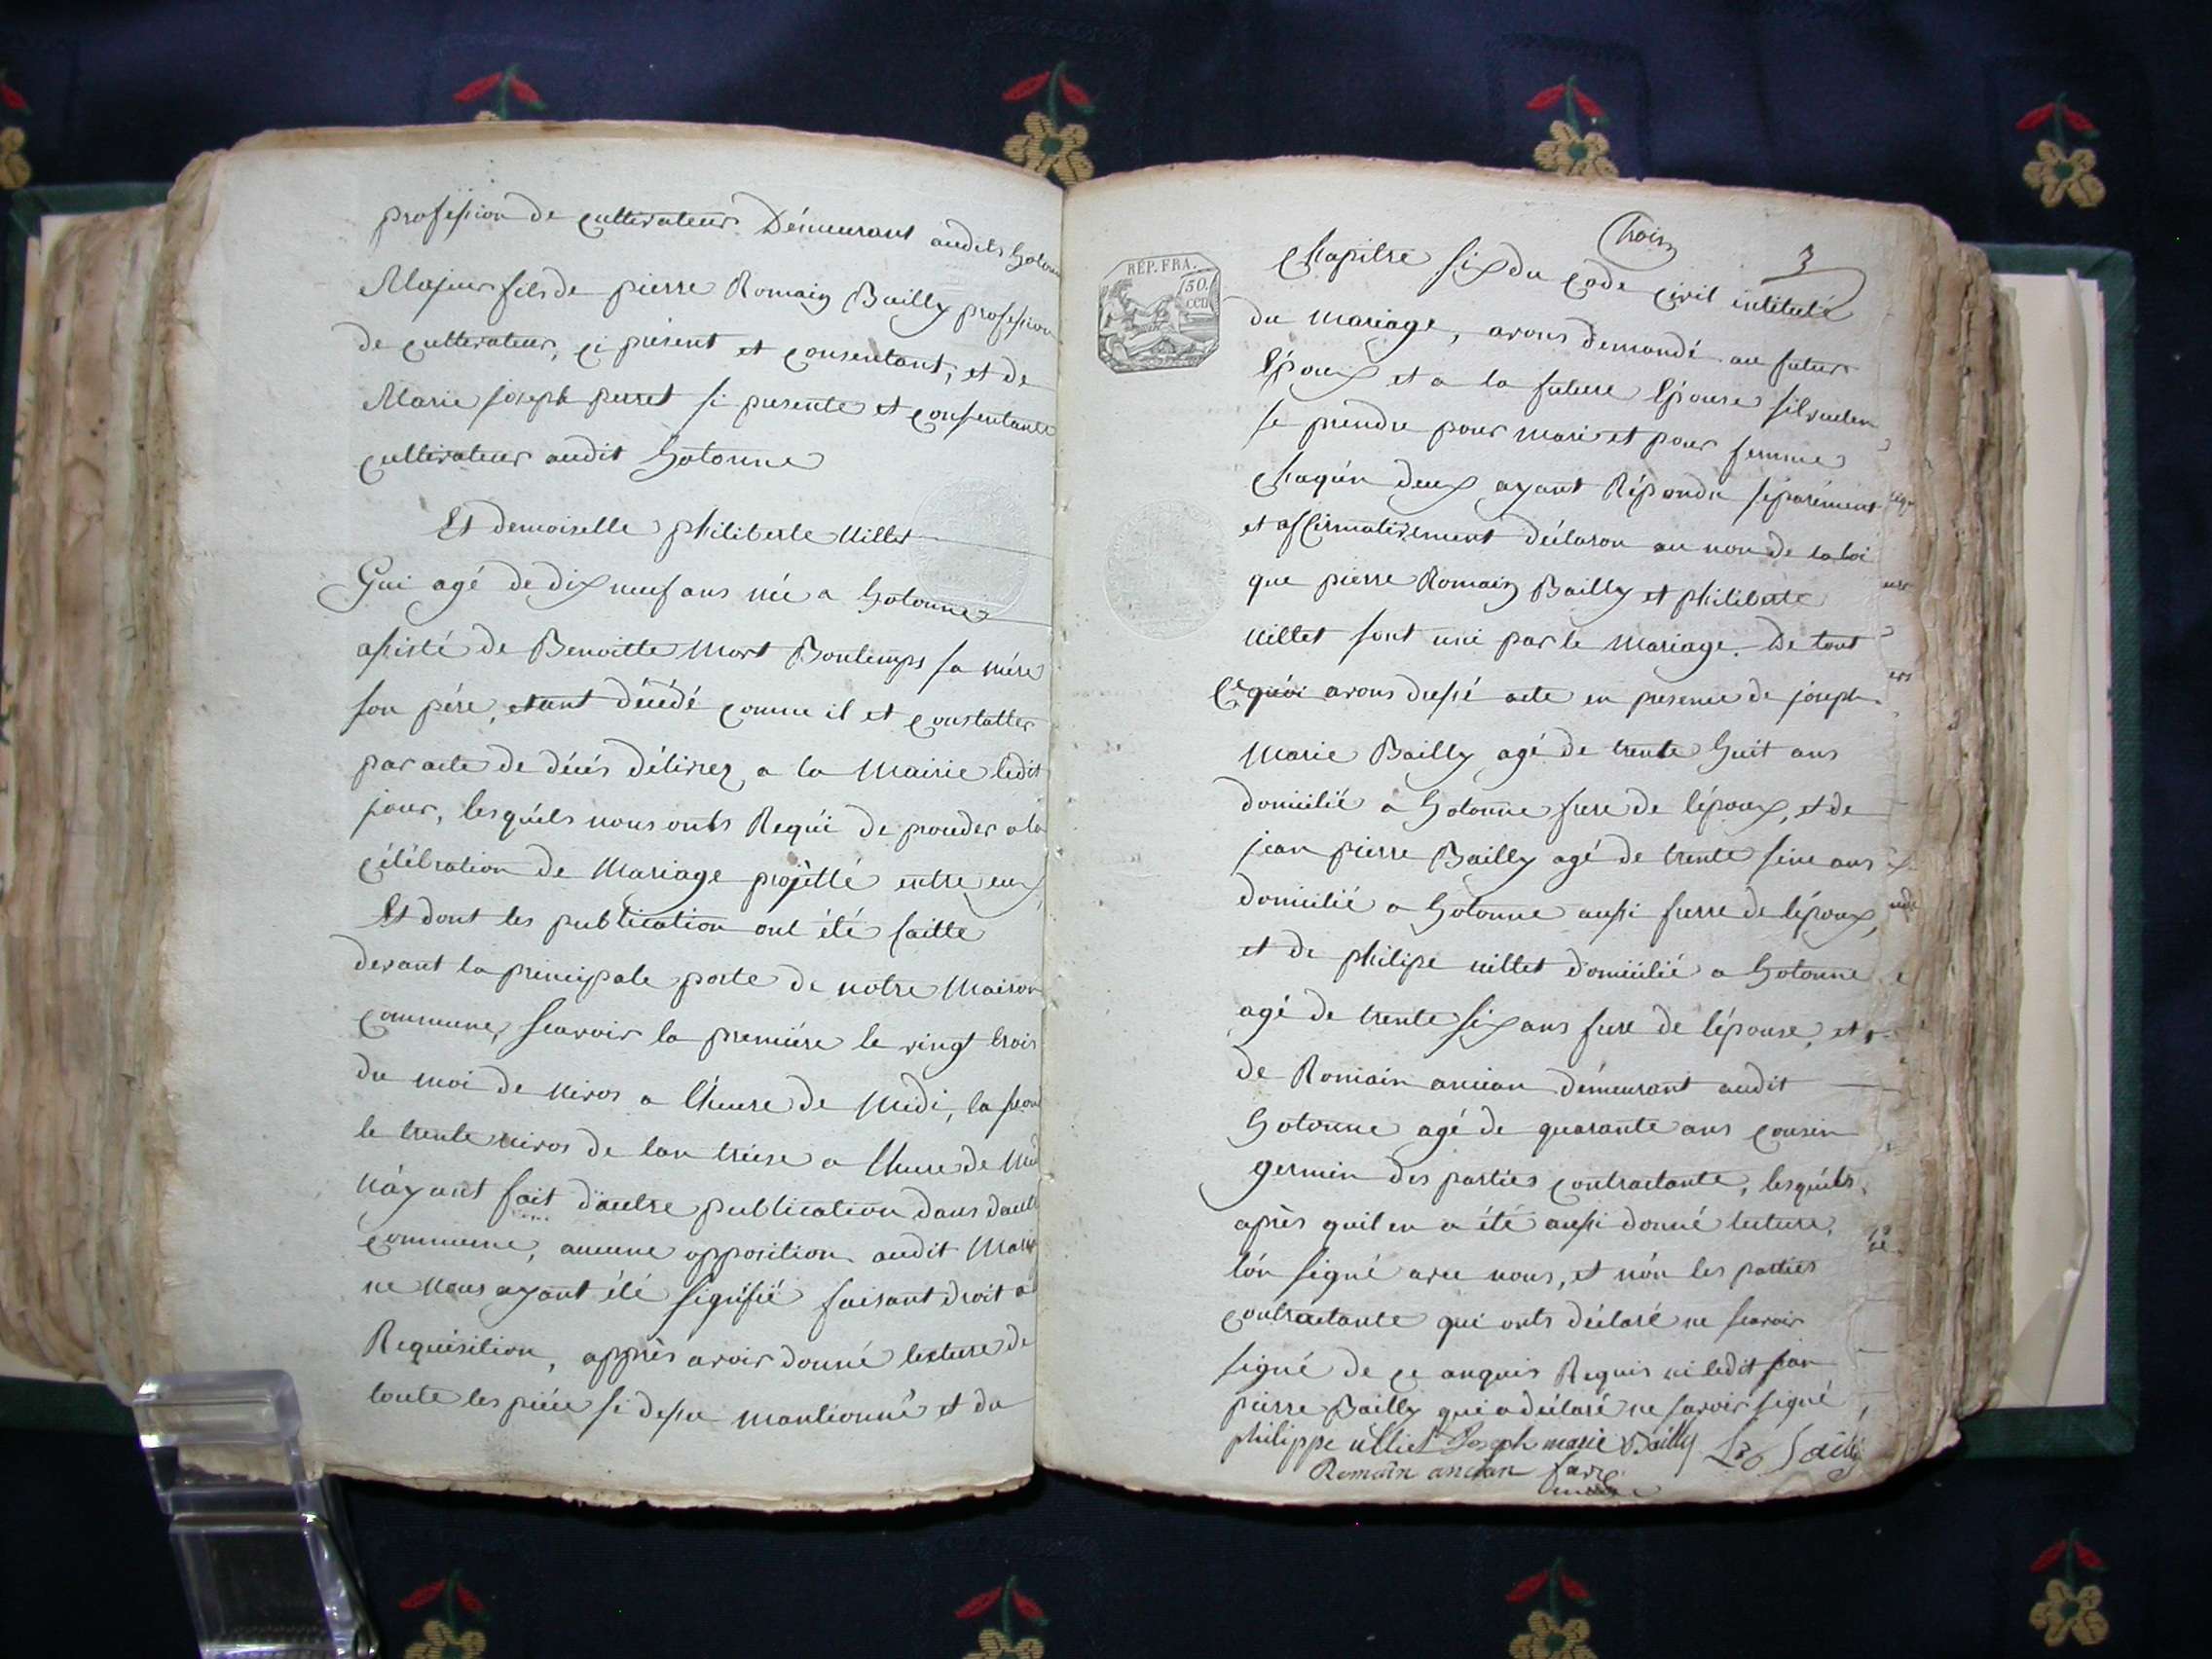 profession de cultivateur Démeurant audits hotonne
Majeur fils de pierre Romain Bailly profession
de cultivateur, ci présent et consentant, et de
Marie joseph perret si presente et consentante
cultivateur audit hotonne
Et demoiselle philiberte Millet
Qui agé de dix neuf ans née a hotonne
assisté de Benoitte Mort Bontemps sa mére
son pére, etant décédé comme il et constatter
par acte de décés délivrez a la Mairie ledit
jour, lesquéls nous onts Requi de proceder a la
célébration de Mariage projètté entre eux
Et dont les publication ont été faitte
devant la principale porte de notre Maison
commune, scavoir la premiére le vingt trois
du moi de nivos a l'heure de Midi, la
le trente nivos de lan treise a lheure de Midi
náyant fait d'autre publication dans
commune, aucune opposition audit
ne nous ayant été signifié faisant droit a
Requisition, apprès avoir donné lecture de
toute les piéce si dessu mantionné et du
trois
3
RÉP. FRA.
50.
cen
chapitre six du code civil intitulé
du mariage, avons demandé au futur
Epoux et a la future Epouse silveulen
se prendre pour mari et pour femme
chaqún deux ayant Répondu séparément
et affirmativement déclaron au nom de la loi
que pierre Romain Bailly et philiberte
Millet sont uni par le mariage. De tout
Ce quói avons dressé acte en presence de joseph
Marie Bailly agé de trente huit ans
domicilié a hotonne frere de lépoux, et de
jean pierre Bailly agé de trente ans
domicilié a hotonne aussi frerre de lépoux,
et de philipe millet domicilié a hotonne
agé de trente six ans frere de lépouse, et
de Romain ancian démeurant audit
hotonne agé de quarante ans cousin
germin des parties contractante, lesquéls
après quil en a été aussi donné lecture,
lón signé avec nous, et nón les parties
contractante qui onts déclaré ne scavoir
signé de ce anquis Requis ni ledit jean
pierre Bailly qui a déclaré ne savoir signé
philippe Millet Joseph marie Bailly
Romain ancian